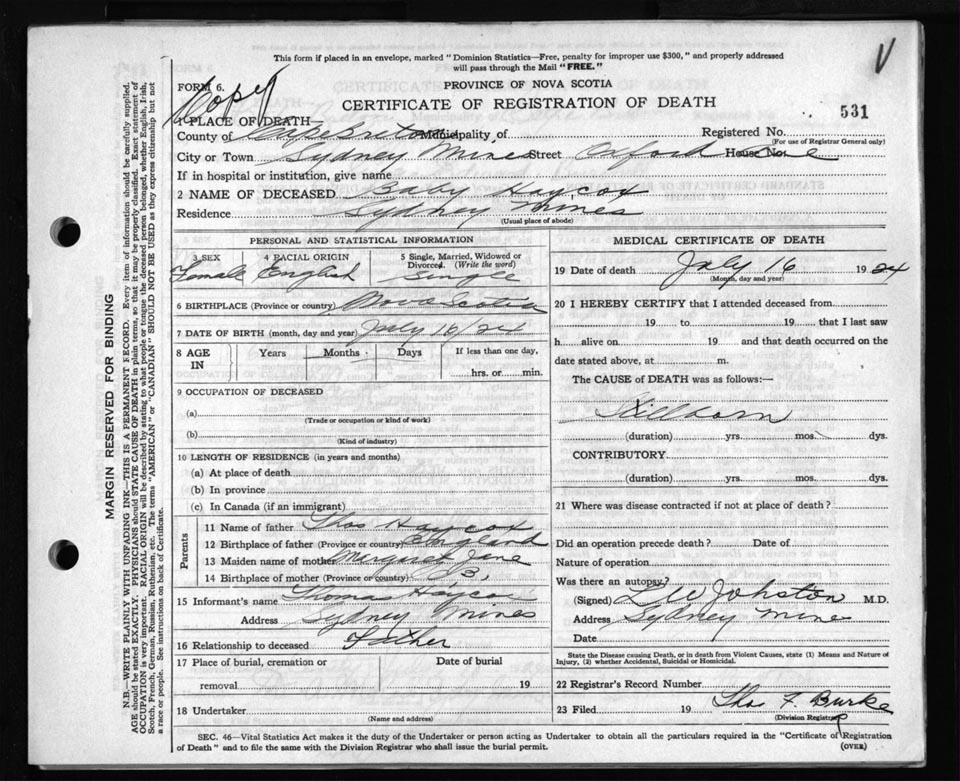 This form if placed in an envelope, marked "Dominion Statistics—Free, penalty for improper use $300," and properly addressed
will pass through the Mail "FREE."
FORM 6.
PROVINCE OF NOVA SCOTIA
Copy
CERTIFICATE OF REGISTRATION OF DEATH
531
1 PLACE OF DEATH—
County of Cape Breton Municipality of Registered No.
(For use of Registrar General only)
City or Town Sydney Mines Street Oxford House No.
If in hospital or institution, give name
2 NAME OF DECEASED Baby Haycox
Residence Sydney Mines
(Usual place of abode)
PERSONAL AND STATISTICAL INFORMATION
3 SEX 4 RACIAL ORIGIN 5 Single, Married, Widowed or Divorced. (Write the word)
Female English Single
6 BIRTHPLACE (Province or country) Nova Scotia
7 DATE OF BIRTH (month, day and year) July 16/24
8 AGE IN Years Months Days If less than one day, hrs. or min.
9 OCCUPATION OF DECEASED
(a)
(Trade or occupation or kind of work)
(b)
(Kind of industry)
10 LENGTH OF RESIDENCE (in years and months)
(a) At place of death
(b) In province
(c) In Canada (if an immigrant)
Parents
11 Name of father Thos Haycox
12 Birthplace of father (Province or country) England
13 Maiden name of mother Margaret Jane
14 Birthplace of mother (Province or country) C B,
15 Informant's name Thomas Haycox
Address Sydney Mines
16 Relationship to deceased Father
17 Place of burial, cremation or Date of burial
removal 19
18 Undertaker
(Name and address)
MEDICAL CERTIFICATE OF DEATH
19 Date of death July 16 1924
(Month, day and year)
20 I HEREBY CERTIFY that I attended deceased from
19 to 19 that I last saw
h alive on 19 and that death occurred on the
date stated above, at m.
The CAUSE of DEATH was as follows:—
Stillborn
(duration) yrs. mos. dys.
CONTRIBUTORY
(duration) yrs. mos. dys.
21 Where was disease contracted if not at place of death?
Did an operation precede death? Date of
Nature of operation
Was there an autopsy?
(Signed) L W Johnston M.D.
Address Sydney Mines
Date
State the Disease causing Death, or in death from Violent Causes, state (1) Means and Nature of
Injury, (2) whether Accidental, Suicidal or Homicidal.
22 Registrar's Record Number
23 Filed 19 Thos F. Burke
(Division Registrar)
SEC. 46—Vital Statistics Act makes it the duty of the Undertaker or person acting as Undertaker to obtain all the particulars required in the "Certificate of Registration
of Death" and to file the same with the Division Registrar who shall issue the burial permit.
(OVER)
MARGIN RESERVED FOR BINDING
N.B.—WRITE PLAINLY WITH UNFADING INK—THIS IS A PERMANENT RECORD. Every item of information should be carefully supplied.
AGE should be stated EXACTLY. PHYSICIANS should STATE CAUSE OF DEATH in plain terms, so that it may be properly classified. Exact statement of
OCCUPATION is very important. RACIAL ORIGIN will be described by stating to what people or tongue the deceased person belonged, whether English, Irish,
Scotch, French, German, Russian, Ruthenian, etc. The terms "AMERICAN" or "CANADIAN" SHOULD NOT BE USED as they express citizenship but not
a race or people. See instructions on back of Certificate.